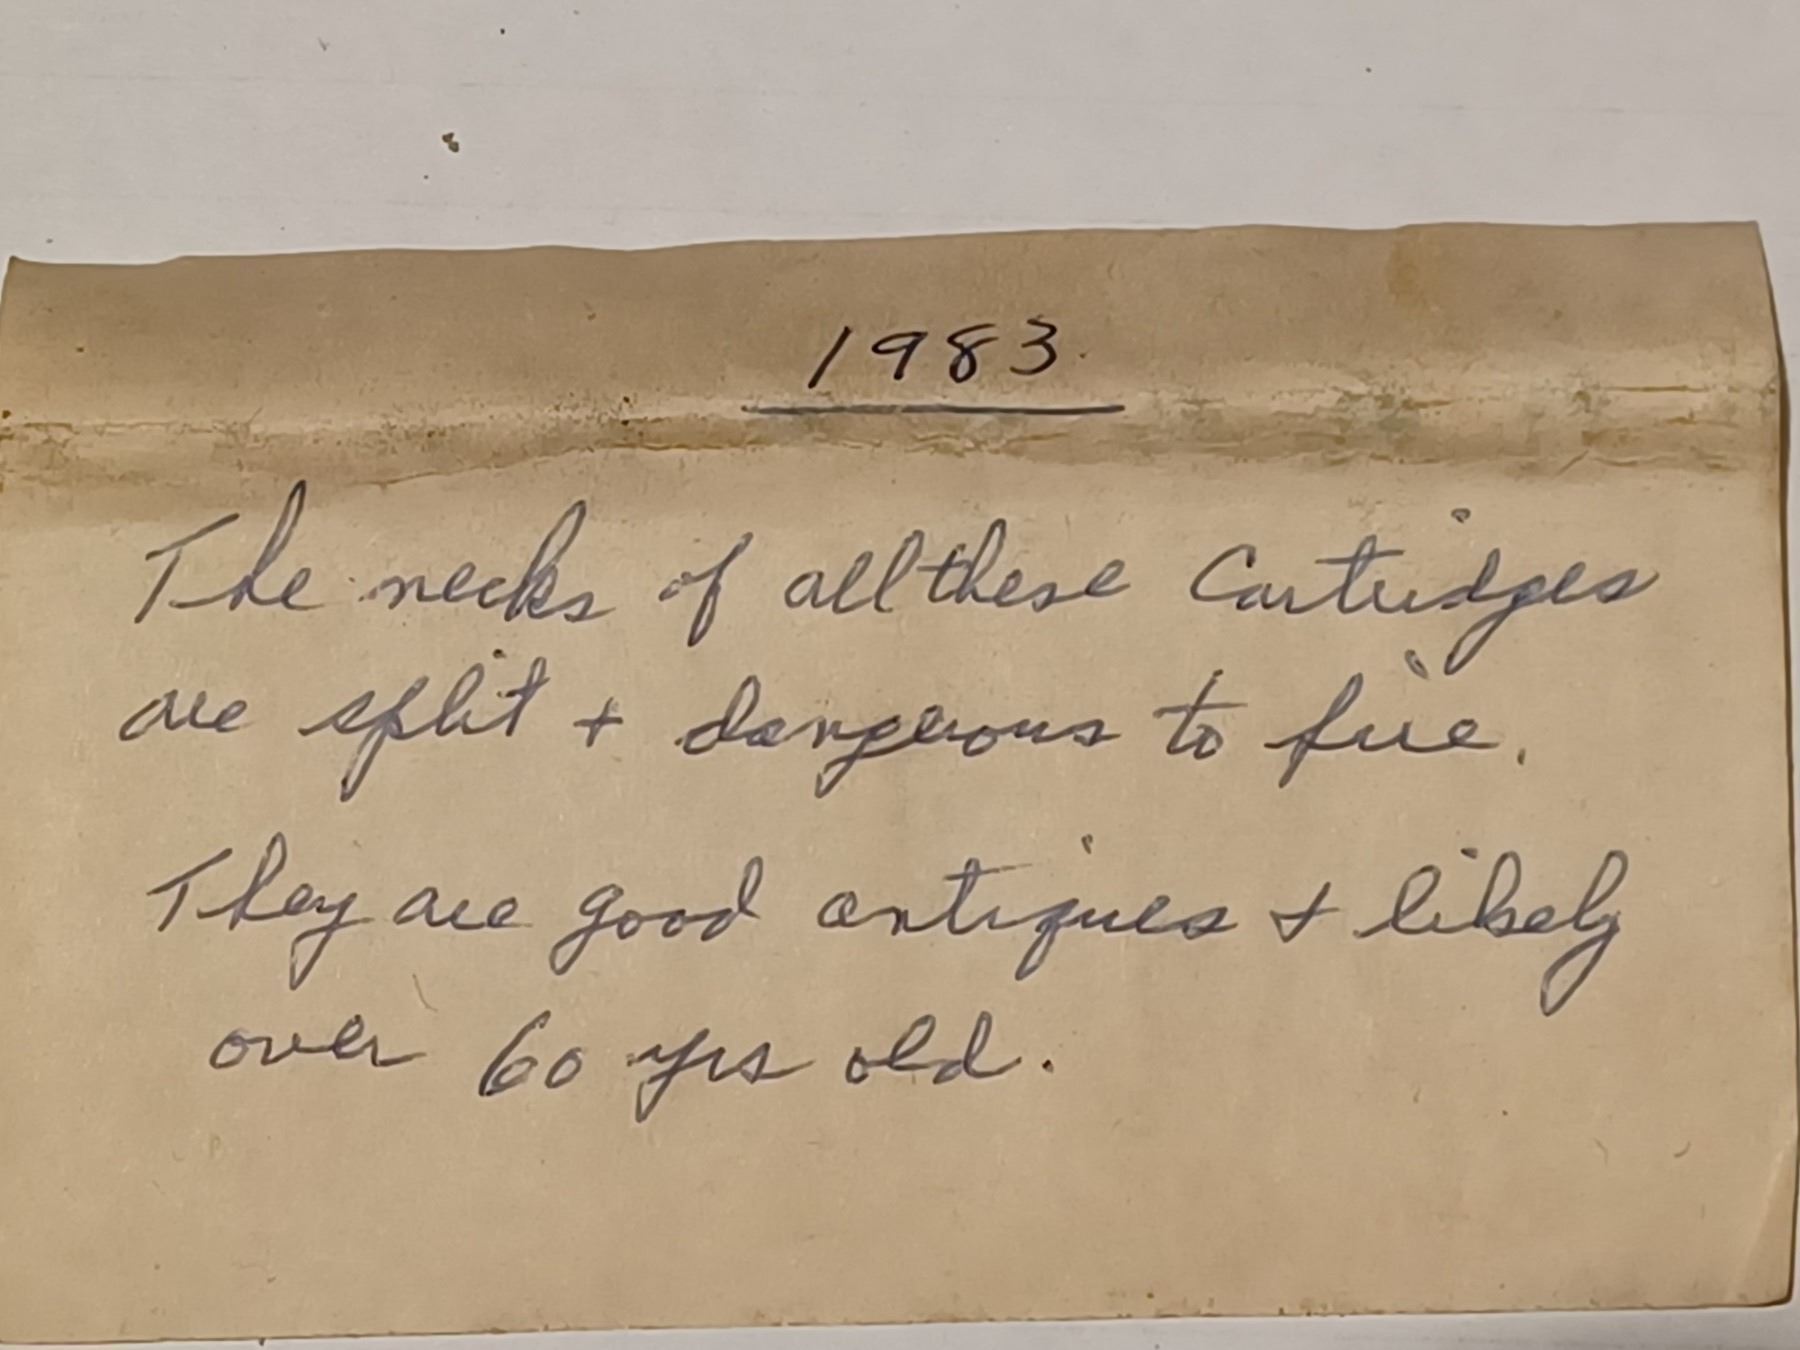 1983
The necks of all these Cartridges
are split + dangerous to fire.
They are good antiques + likely
over 60 yrs old.